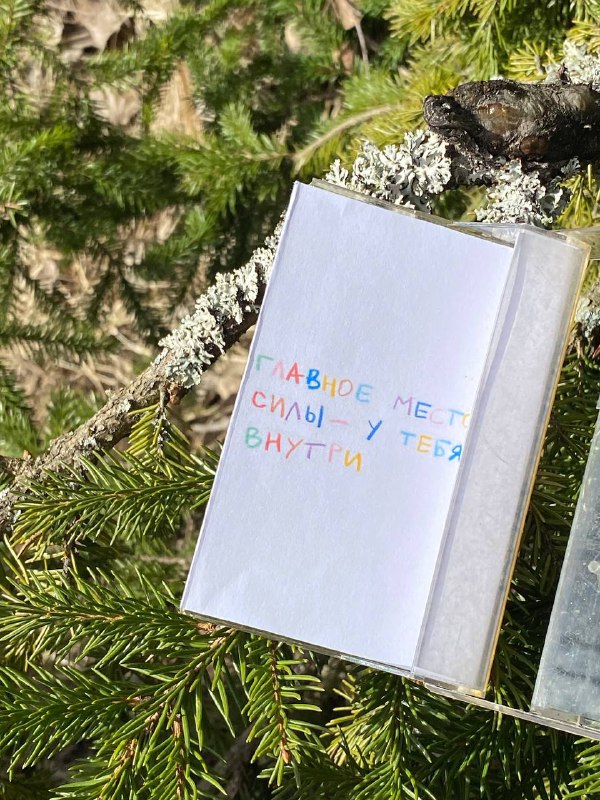 ГЛАВНОЕ МЕСТО
СИЛЫ — У ТЕБЯ
ВНУТРИ